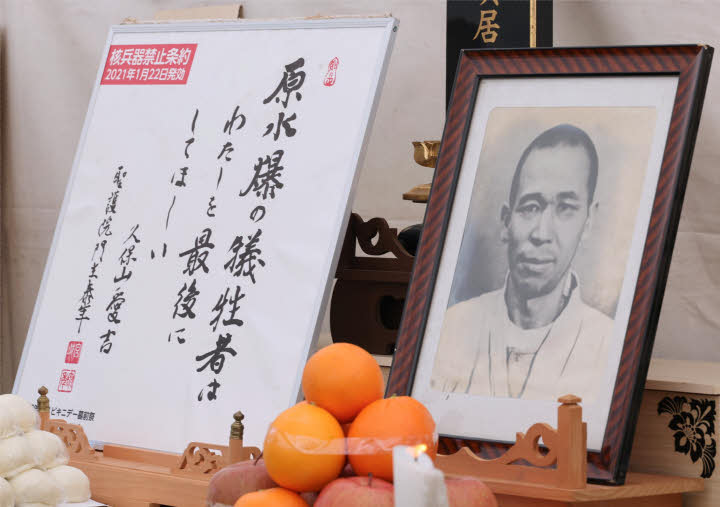 核兵器禁止条約
2021年1月22日発効
原水爆の犠牲者は
わたしを最後に
してほしい
久保山愛吉
聖護院門主
ビキニデー墓前祭
居